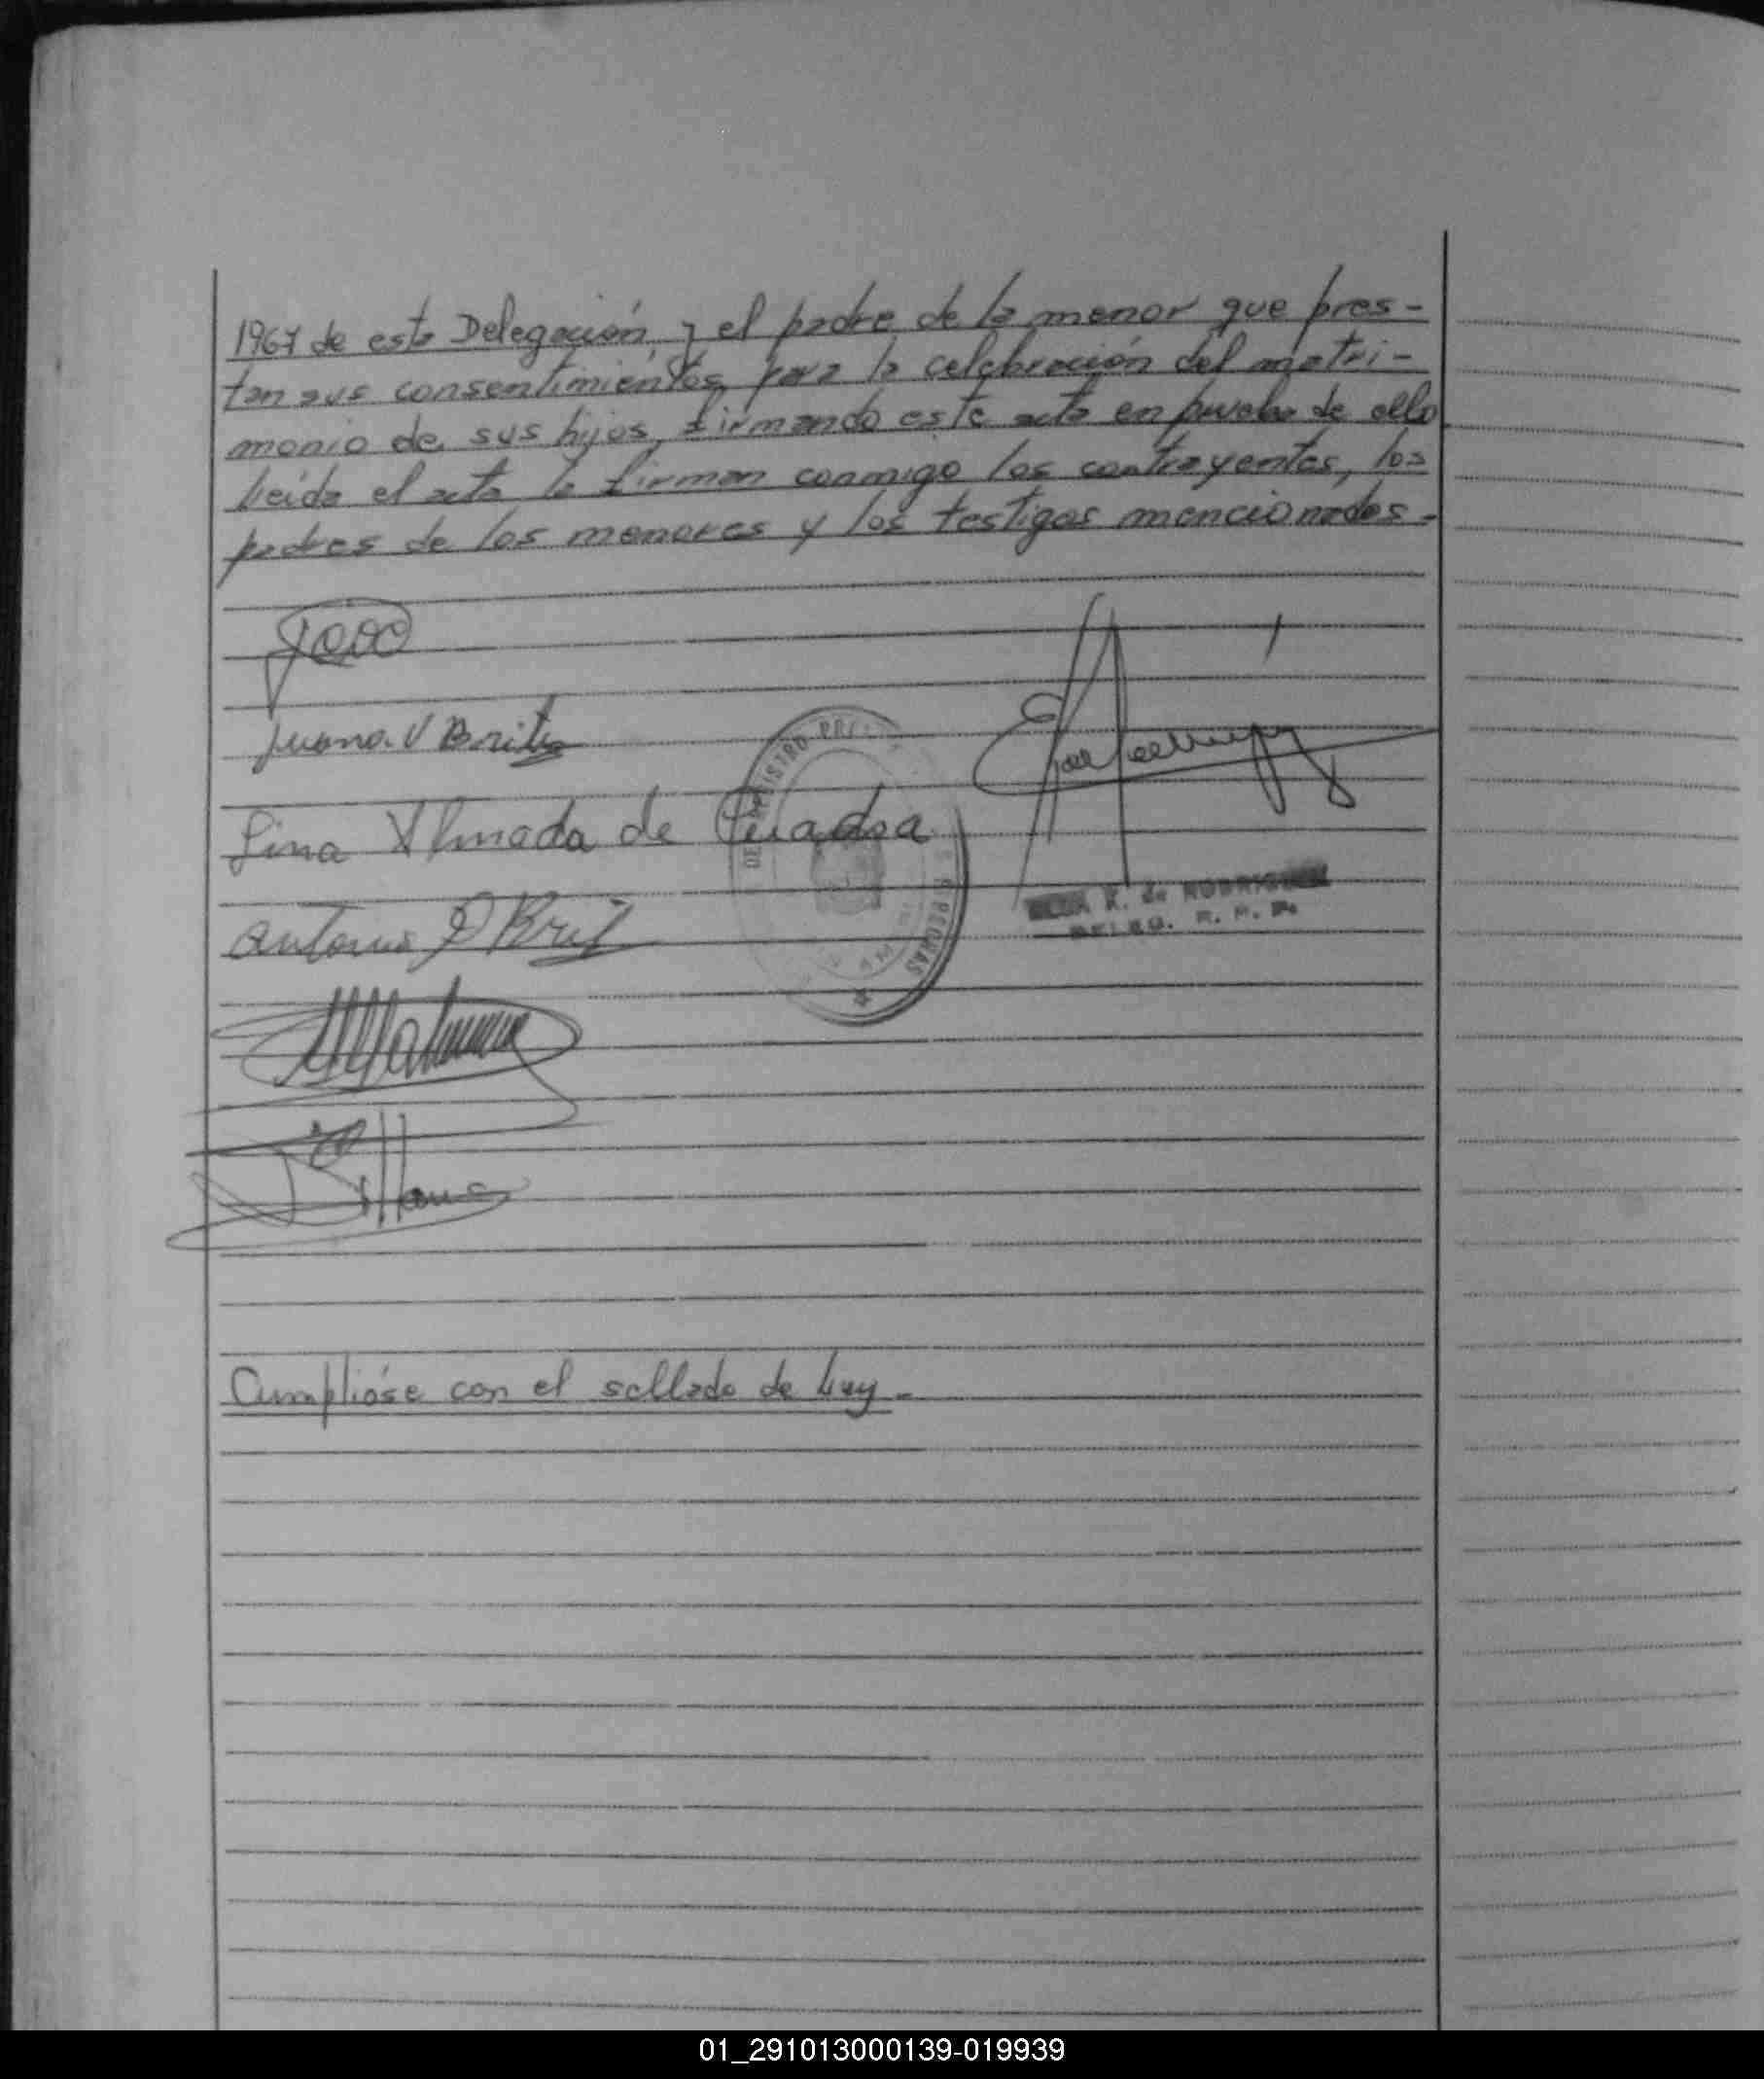 1967 de esta Delegación, y el padre de la menor que pres-
tan sus consentimientos para la celebración del matri-
monio de sus hijos, firmando este acta en prueba de ello
leida el acta la firman conmigo los contrayentes, los
padres de los menores y los testigos mencionados.-
Juana V Britez
Lina Almada de
Antonio Brit
DE REGISTRO PR
ELSA R. de RODRIGUEZ
DELEG. R. P. P.
Cumplióse con el sellado de Ley.-
01_291013000139-019939